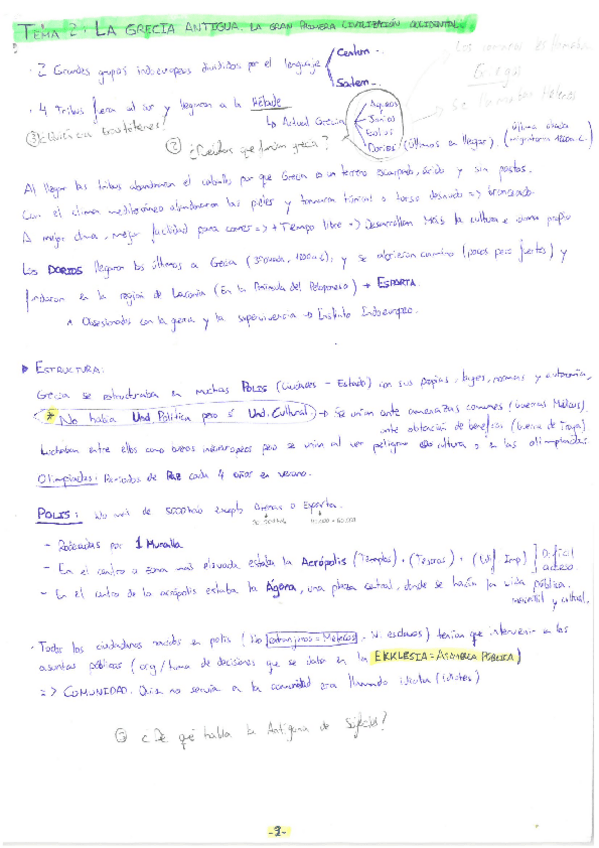 TEMA 2: LA GRECIA ANTIGUA. LA GRAN PRIMERA CIVILIZACIÓN OCCIDENTAL.
· 2 Grandes grupos indoeuropeos divididos por el lenguaje
Centum..
Satem...
· 4 Tribus fueron al sur y llegaron a la Hélade
↳ Actual Grecia
Aqueos
Jonios
Eolios
Dorios (Últimos en llegar).
(Última oleada migratoria 1200 a.C.)
Se llamaban Helenos
③
② ¿ que grecia?
Al llegar las tribus abandonaron el caballo por que Grecia es un terreno escarpado, árido y sin pastos.
Con el clima mediterráneo abandonaron las pieles y tomaron túnicas o torso desnudo => bronceado
A mejor clima, mejor facilidad para comer => + Tiempo libre => Desarrollan Más la cultura e idioma propio
Los DORIOS llegaron los últimos a Grecia (3ª oleada, 1200 a.C); y se abrieron camino (pocos pero fuertes) y
fundaron en la región de Laconia (En la Península del Peloponeso) → ESPARTA.
Obsesionados con la guerra y la supervivencia → Instituto Indoeuropeo.
▶ ESTRUCTURA:
Grecia se estructuraba en muchas POLIS (Ciudades - Estado) con sus propias leyes, normas y autonomía.
* No había Und. Política pero sí Und. Cultural. → Se unían ante amenazas comunes (Guerras Médicas).
ante obtención de beneficios (Guerra de Troya)
Luchaban entre ellos como buenos indoeuropeos pero se unían al ver peligrar su cultura o en las olimpiadas
Olimpiadas: Periodos de Paz cada 4 años en verano.
POLIS: No más de 5000 hab excepto Atenas o Esparta.
- Rodeadas por 1 Muralla
- En el centro o zona más elevada estaba la Acrópolis (Templos) + (Tesoros) + Difícil acceso
- En el centro de la acrópolis estaba la Ágora, una plaza central, donde se hacían la vida pública.
mercantil y cultural.
· Todos los ciudadanos nacidos en polis (No extranjeros = Metecos. Ni esclavos) tenían que intervenir en los
asuntos públicos (org/toma de decisiones que se daba en la EKKLESIA = ASAMBLEA PÚBLICA)
=> COMUNIDAD. Quien no servía a la comunidad era llamado idiota (idiotes)
¿De qué habla la Antígona de Sófocles?
-1-